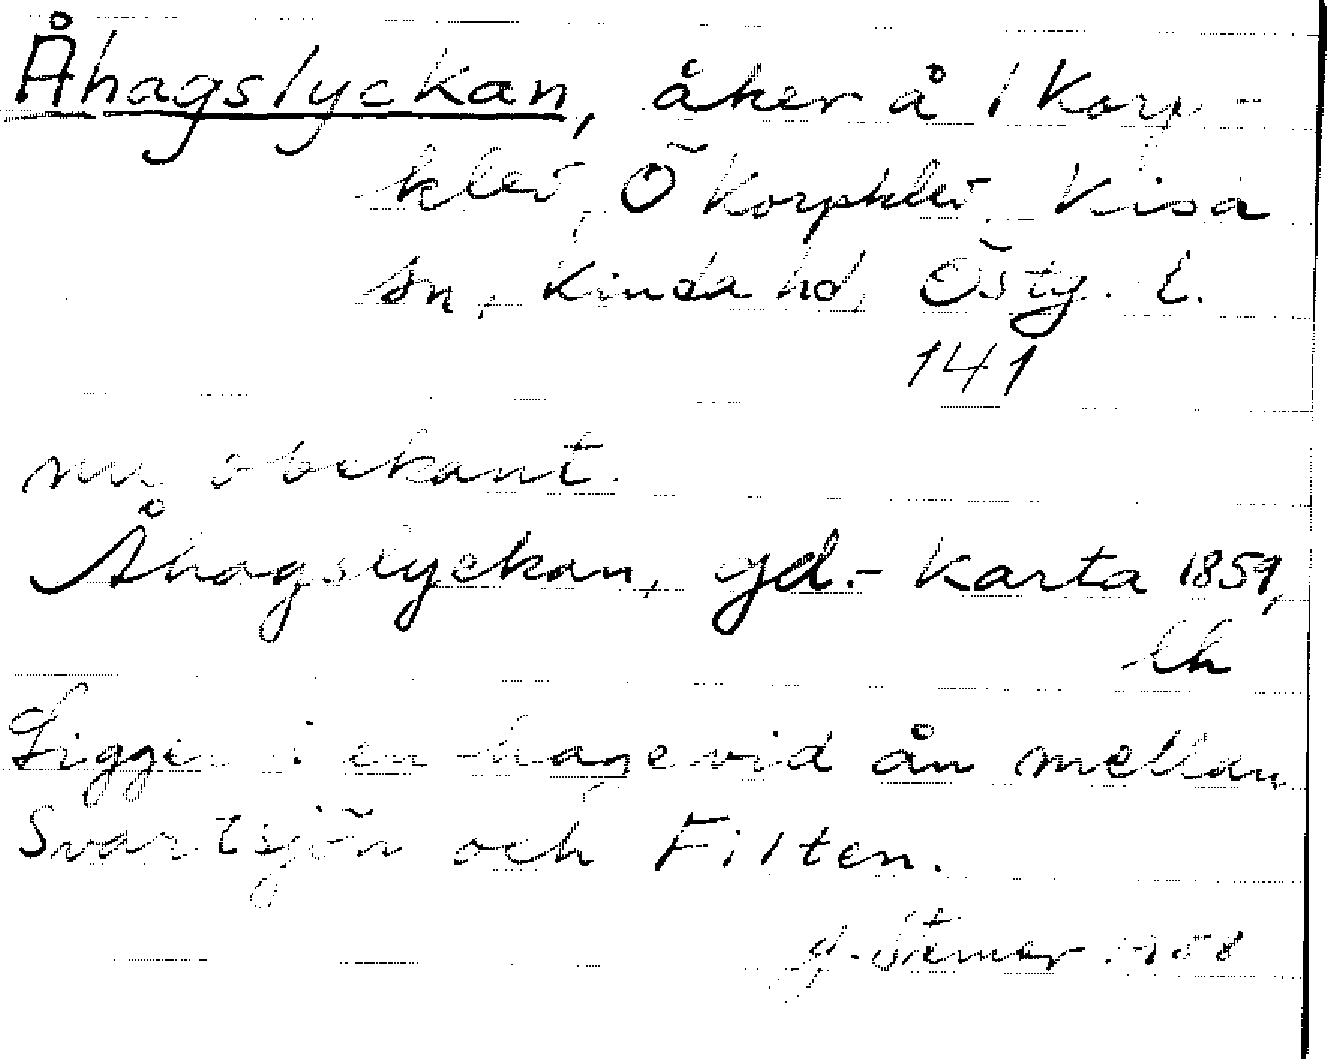 Åhagslyckan, åker å 1 Korp-
klev, Ö Korpklev. Kisa
sn, Kinda hd, Östg. l.
141
nu obekant.
Åhagslyckan, gd.- karta 1859,
lh
Ligger i en hage vid ån mellan
Svartsjön och Filten.
1958